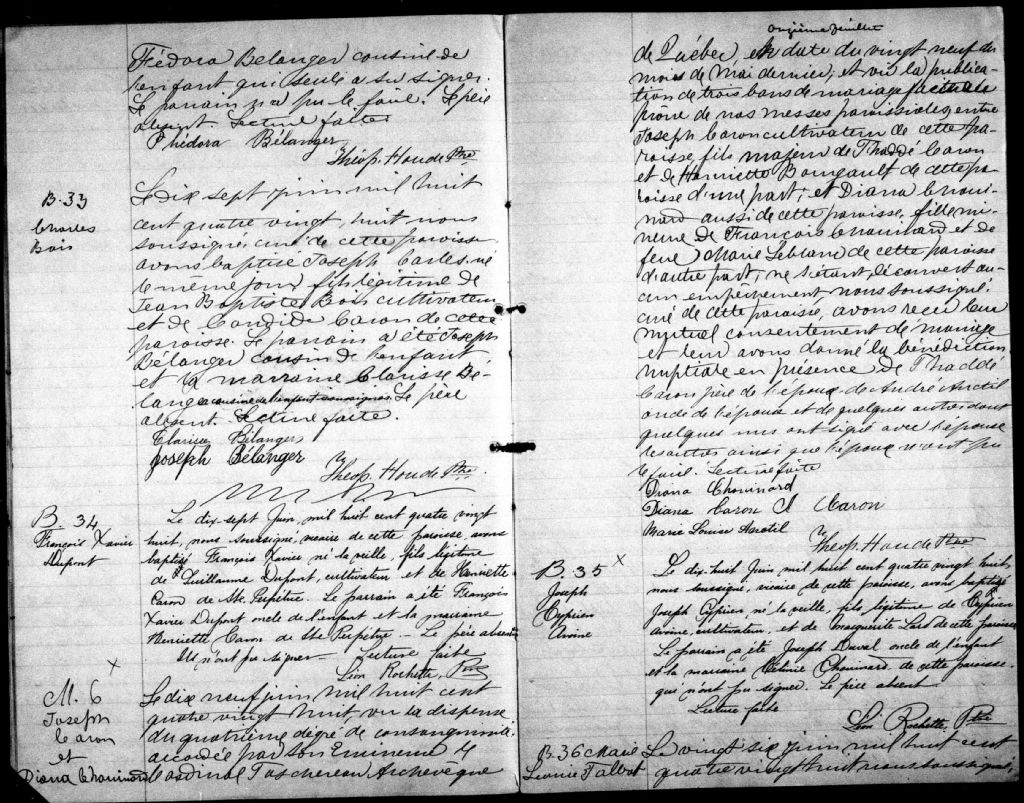 Fédora Belanger cousine de
l'enfant qui seule a su signer.
Le parrain n'a pu le faire. Le père
absent. Lecture faite
Phédora Bélanger
Théop. Houde Ptre
B. 33
Charles
Bois
Le dix sept juin mil huit
cent quatre vingt, huit nous
soussigné, curé de cette paroisse
avons baptisé Joseph Carles né
le même jour fils légitime de
Jean Baptiste Bois cultivateur
et de Candide Caron de cette
paroisse. Le parrain a été Joseph
Bélanger cousin de l'enfant
et la marraine Clarisse Bé-
langer cousine de l'enfant soussignés. Le père
absent. Lecture faite.
Clarisse Bélanger
Joseph Bélanger
Théop. Houde Ptre
B. 34
François Xavier
Dupont
Le dix-sept Juin, mil huit cent quatre vingt
huit, nous soussigné, vicaire de cette paroisse, avons
baptisé François Xavier né la veille, fils légitime
de Guillaume Dupont, cultivateur et de Henriette
Caron de Ste Perpétue. Le parrain a été François
Xavier Dupont oncle de l'enfant et la marraine
Henriette Caron de Ste Perpétue – Le père absent
Ils n'ont pu signer – Lecture faite
Léon Rochette, Ptre
X
M. 6
Joseph
Caron
et
Diana Chouinard
Le dix neuf juin mil huit cent
quatre vingt huit vu la dispense
du quatrième dégré de consanguinité
accordée par Son Eminence le
Cardinal Taschereau Archevêque
onzième feuillet
de Québec, en date du vingt neuf du
mois de Mai dernier, et vu la publica-
tion de trois bans de mariage faite au
prône de nos messes paroissiales, entre
Joseph Caron cultivateur de cette pa-
roisse, fils majeur de Thaddé Caron
et de Henriette Bourgault de cette pa
roisse d'une part; et Diana Choui-
nard aussi de cette paroisse, fille mi-
neure de François Chouinard et de
feue Marie Leblanc de cette paroisse
d'autre part; ne s'étant découvert au-
cun empêchement, nous soussigné,
curé de cette paroisse, avons reçu leur
mutuel consentement de mariage
et leur avons donné la bénédiction
nuptiale en présence de Thaddé
Caron père de l'époux, de André Anctil
oncle de l'épouse et de quelques autres dont
quelques uns ont signé avec l'épouse
les autres ainsi que l'époux n'ayant pu
le faire. Lecture faite
Diana Chouinard
Diana Caron J Caron
Marie Louise Anctil
Théop. Houde Ptre
B. 35 X
Joseph
Cyprien
Avoine
Le dix-huit Juin mil huit cent quatre vingt huit,
nous soussigné, vicaire de cette paroisse, avons baptisé
Joseph Cyprien, né la veille, fils légitime de Cyprien
Avoine, cultivateur, et de Marguerite de cette paroisse
Le parrain a été Joseph Duval oncle de l'enfant
et la marraine Chouinard de cette paroisse.
qui n'ont pu signer. Le père absent
Lecture faite
Léon Rochette Ptre
B. 36 Marie
Léonie Talbot
Le vingt six juin mil huit cent
quatre vingt huit nous soussigné,